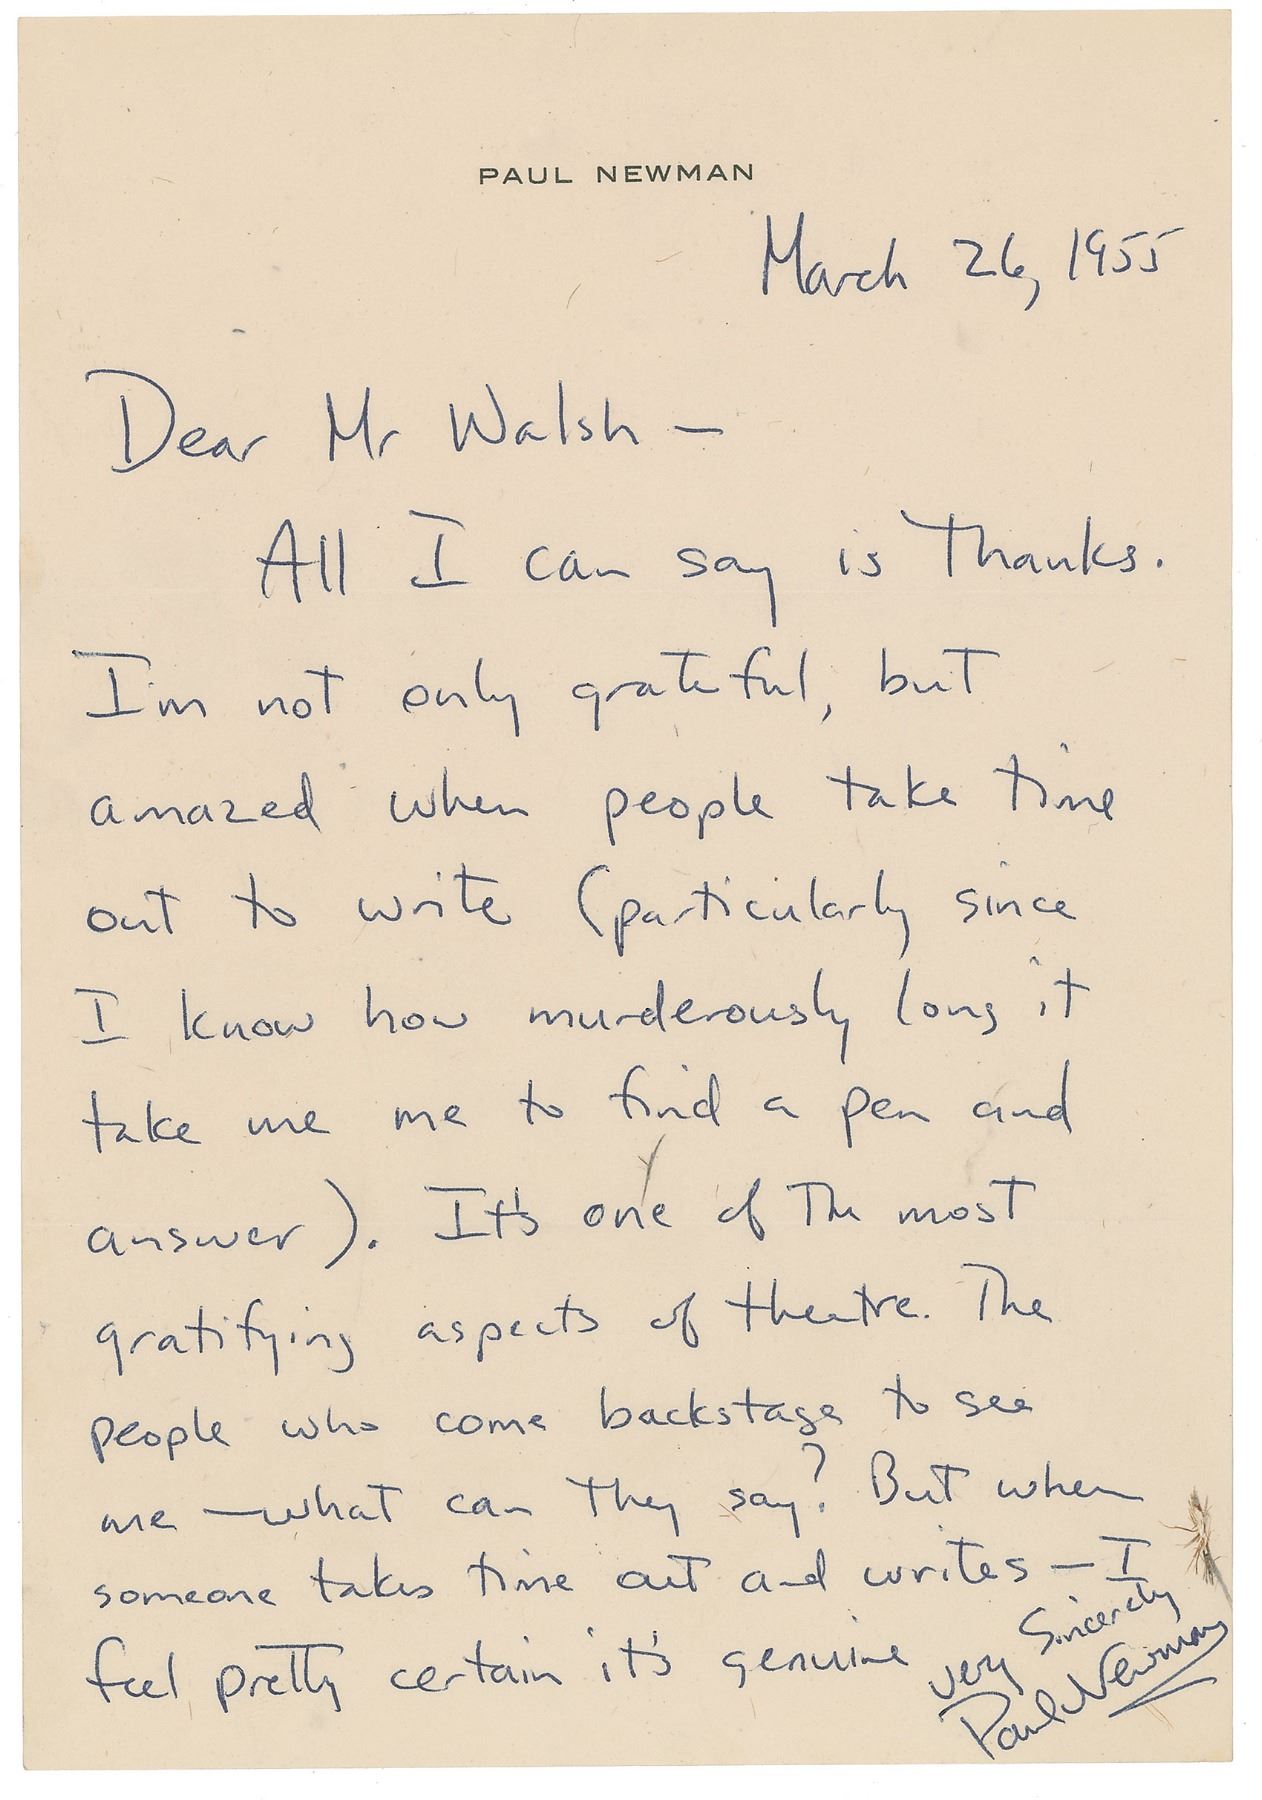 PAUL NEWMAN
March 26, 1955
Dear Mr Walsh —
All I can say is Thanks.
I'm not only grateful, but
amazed when people take time
out to write (particularly since
I know how murderously long it
take me me to find a pen and
answer). It's one of the most
gratifying aspects of theatre. The
people who come backstage to see
me — what can they say? But when
someone takes time out and writes — I
feel pretty certain it's genuine
very Sincerely
Paul Newman